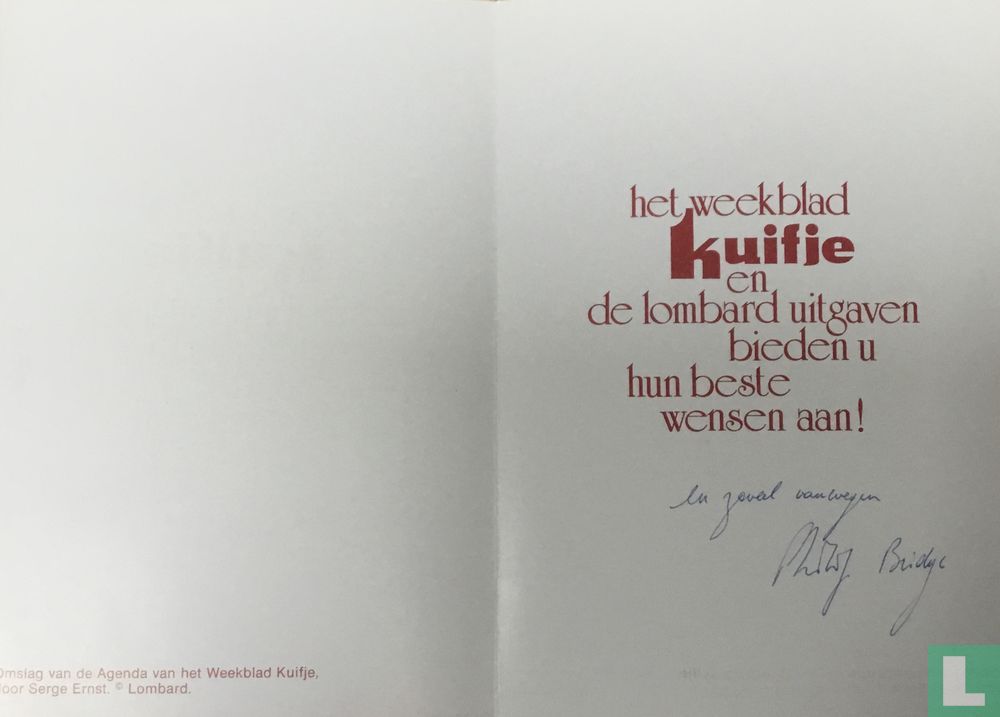 het weekblad
kuifje
en
de lombard uitgaven
bieden u
hun beste
wensen aan!
en zoveel vanwegen
Philip Bridge
Omslag van de Agenda van het Weekblad Kuifje,
door Serge Ernst. © Lombard.
L